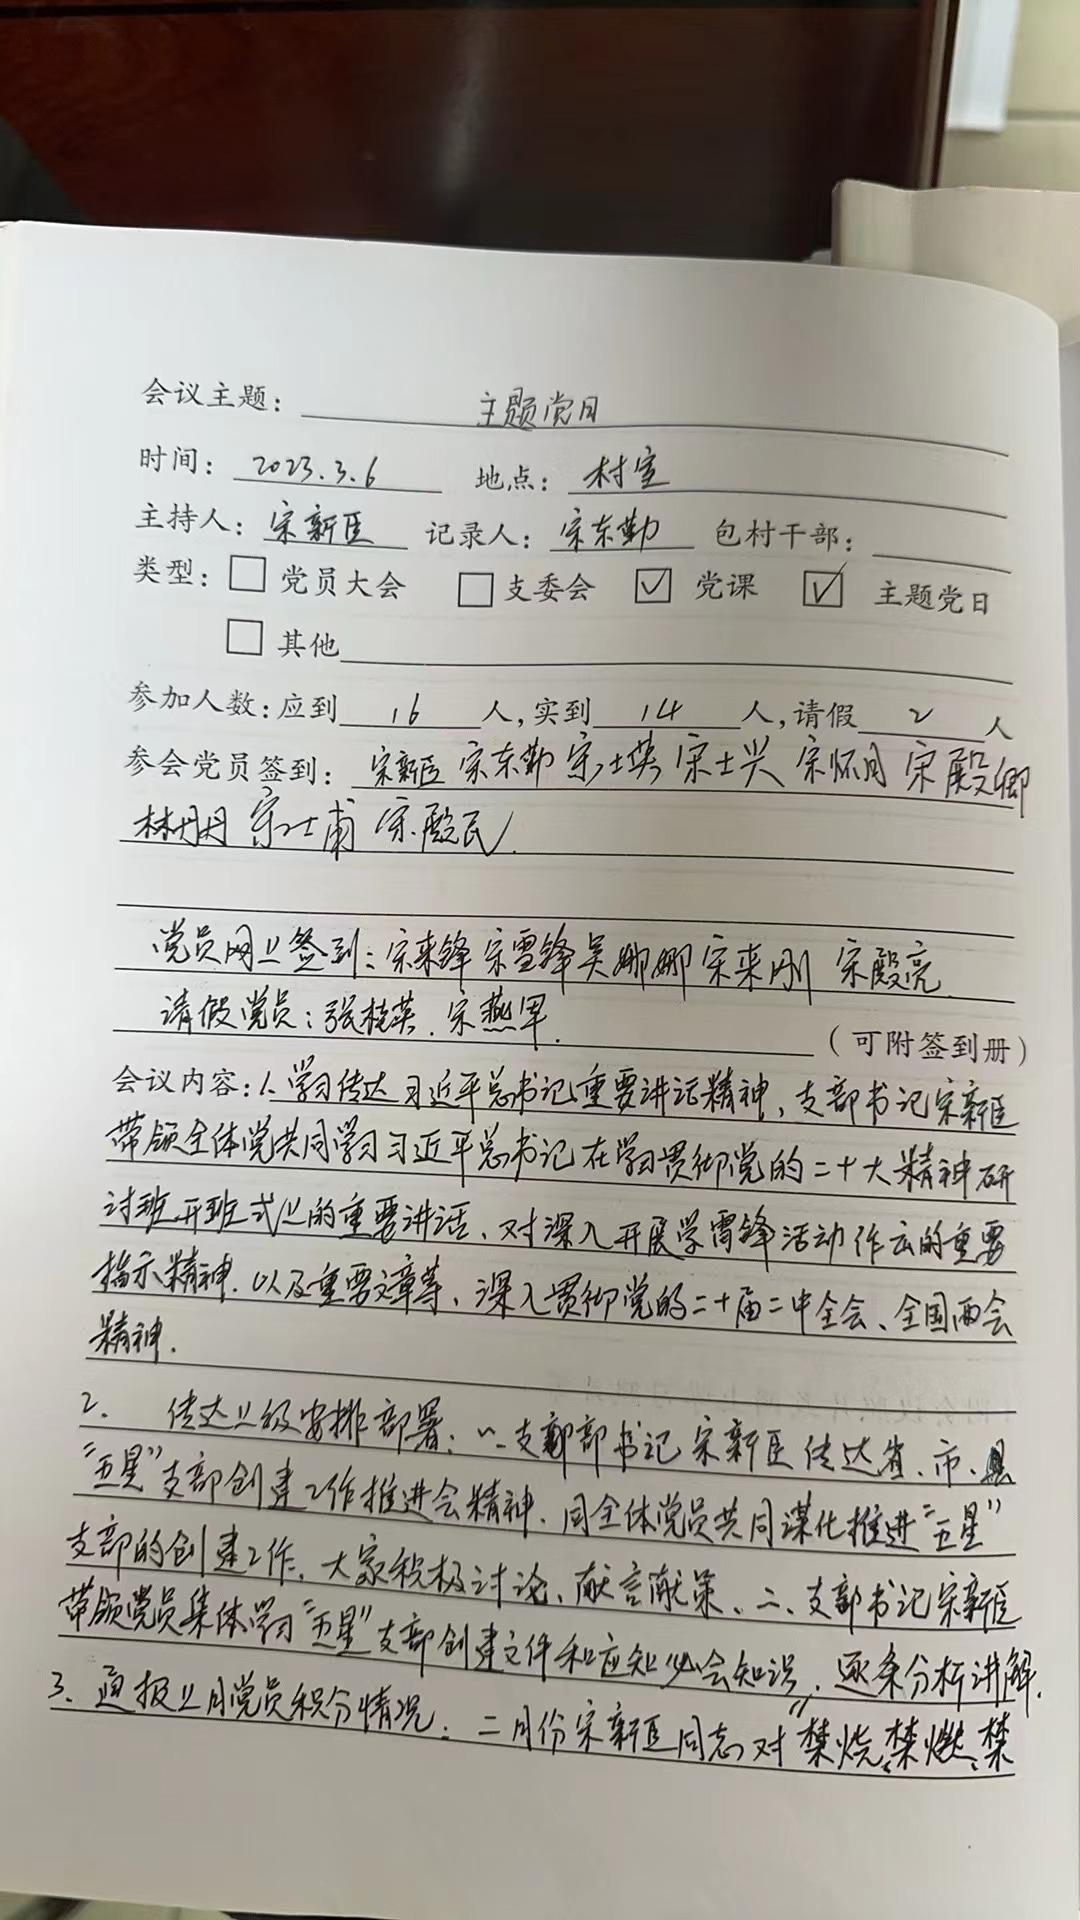 会议主题： 主题党日
时间： 2023.3.6 地点： 村室
主持人： 宋新臣 记录人： 宋东勤 包村干部：
类型： 党员大会 支委会 ✓ 党课 ✓ 主题党日
其他
参加人数：应到 16 人，实到 14 人，请假 2 人
参会党员签到： 宋新臣 宋东勤 宋士英 宋士兴 宋怀月 宋殿卿
林丹丹 宋士甫 宋殿民.
党员网上签到：宋来锋 宋雪锋 吴娜娜 宋来刚 宋殿亮.
请假党员：张桂英. 宋燕军. （可附签到册）
会议内容：1、学习传达习近平总书记重要讲话精神，支部书记宋新臣
带领全体党共同学习习近平总书记在学习贯彻党的二十大精神研
讨班开班式上的重要讲话、对深入开展学雷锋活动作出的重要
指示精神.以及重要文章等、深入贯彻党的二十届二中全会、全国两会
精神.
2. 传达上级安排部署：一、支部部书记宋新臣传达省、市、县
“五星”支部创建工作推进会精神.同全体党员共同谋化推进“五星”
支部的创建工作、大家积极讨论、献言献策、二、支部书记宋新臣
带领党员集体学习“五星”支部创建文件和应知必会知识，逐条分析讲解.
3、通报上月党员积分情况. 二月份宋新臣同志对“禁烧、禁燃、禁